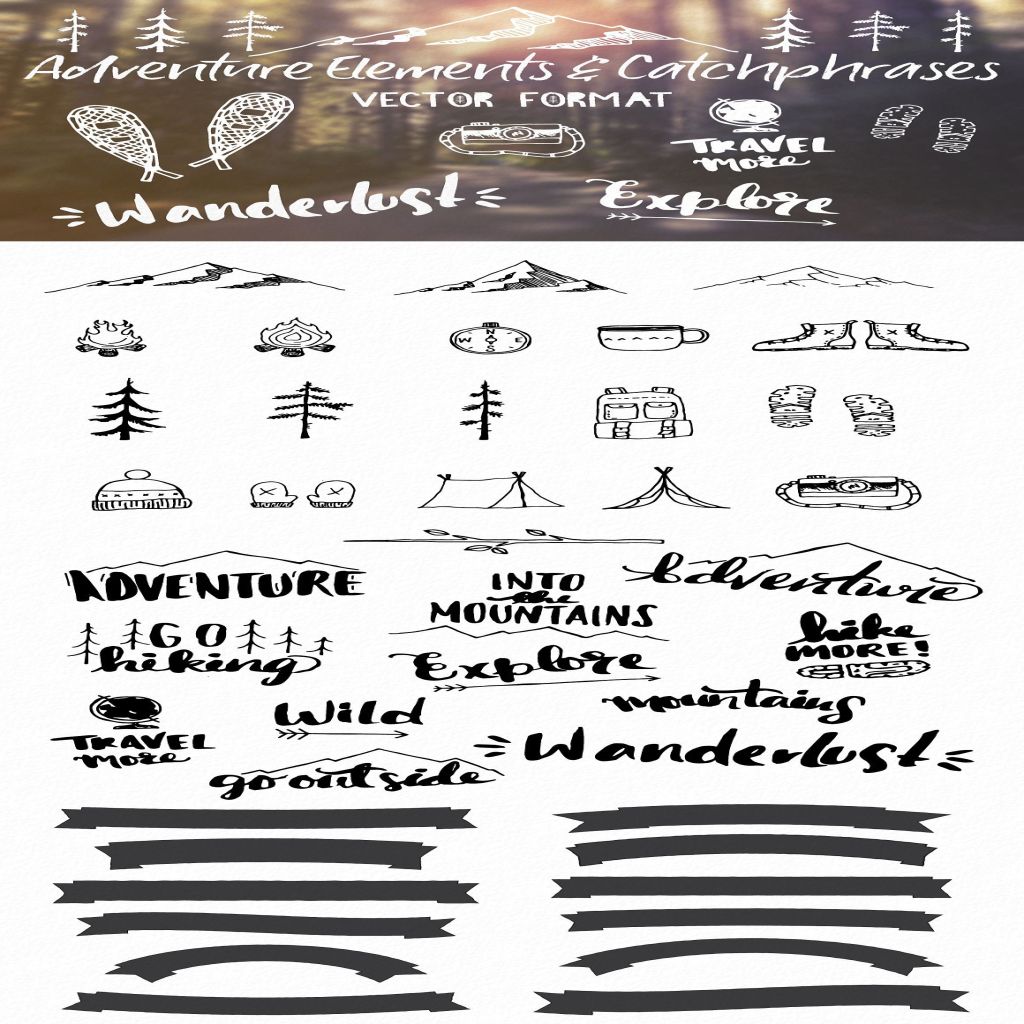 Adventure Elements & Catchphrases
VECTOR FORMAT
TRAVEL
more
Wanderlust
Explore
N
W E
S
ADVENTURE
INTO
the
MOUNTAINS
Adventure
GO
hiking
Explore
hike
MORE!
TRAVEL
more
Wild
mountains
go outside
Wanderlust